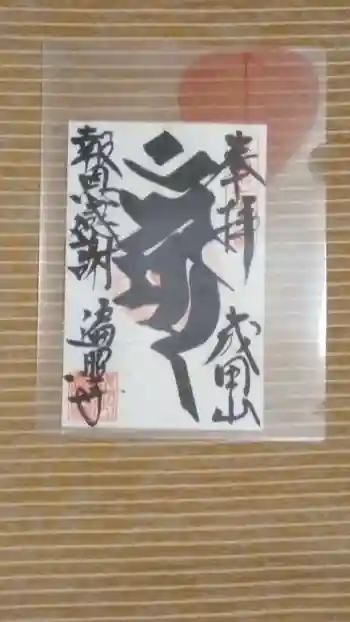 奉拝
成田山
報恩感謝
遍照寺